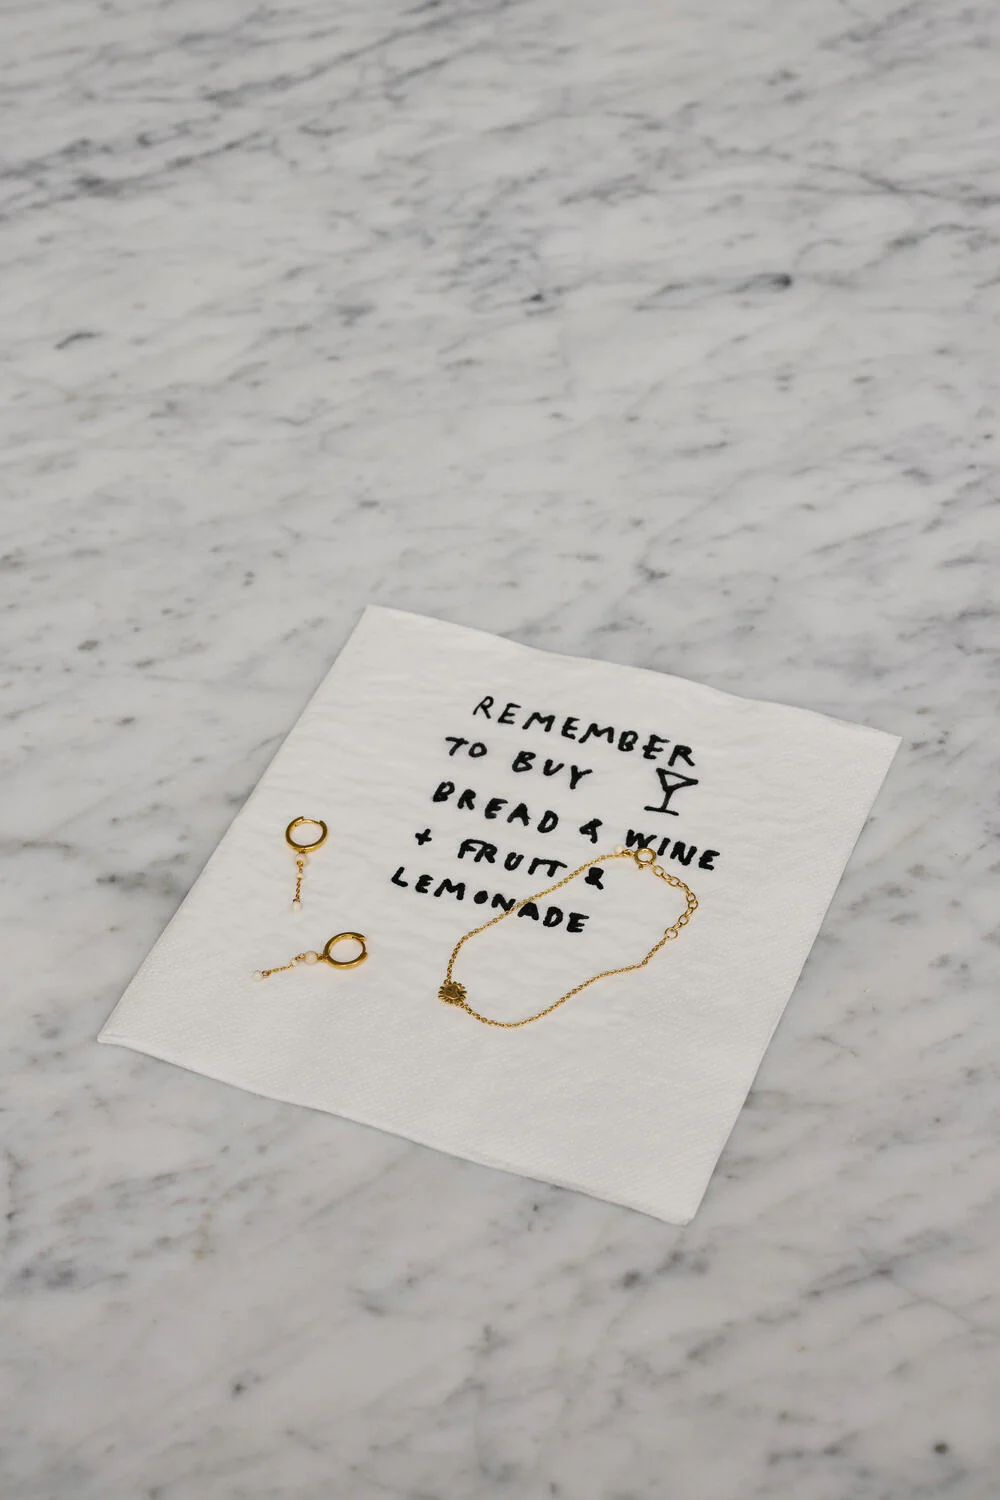 REMEMBER
TO BUY
BREAD & WINE
+ FRUIT &
LEMONADE